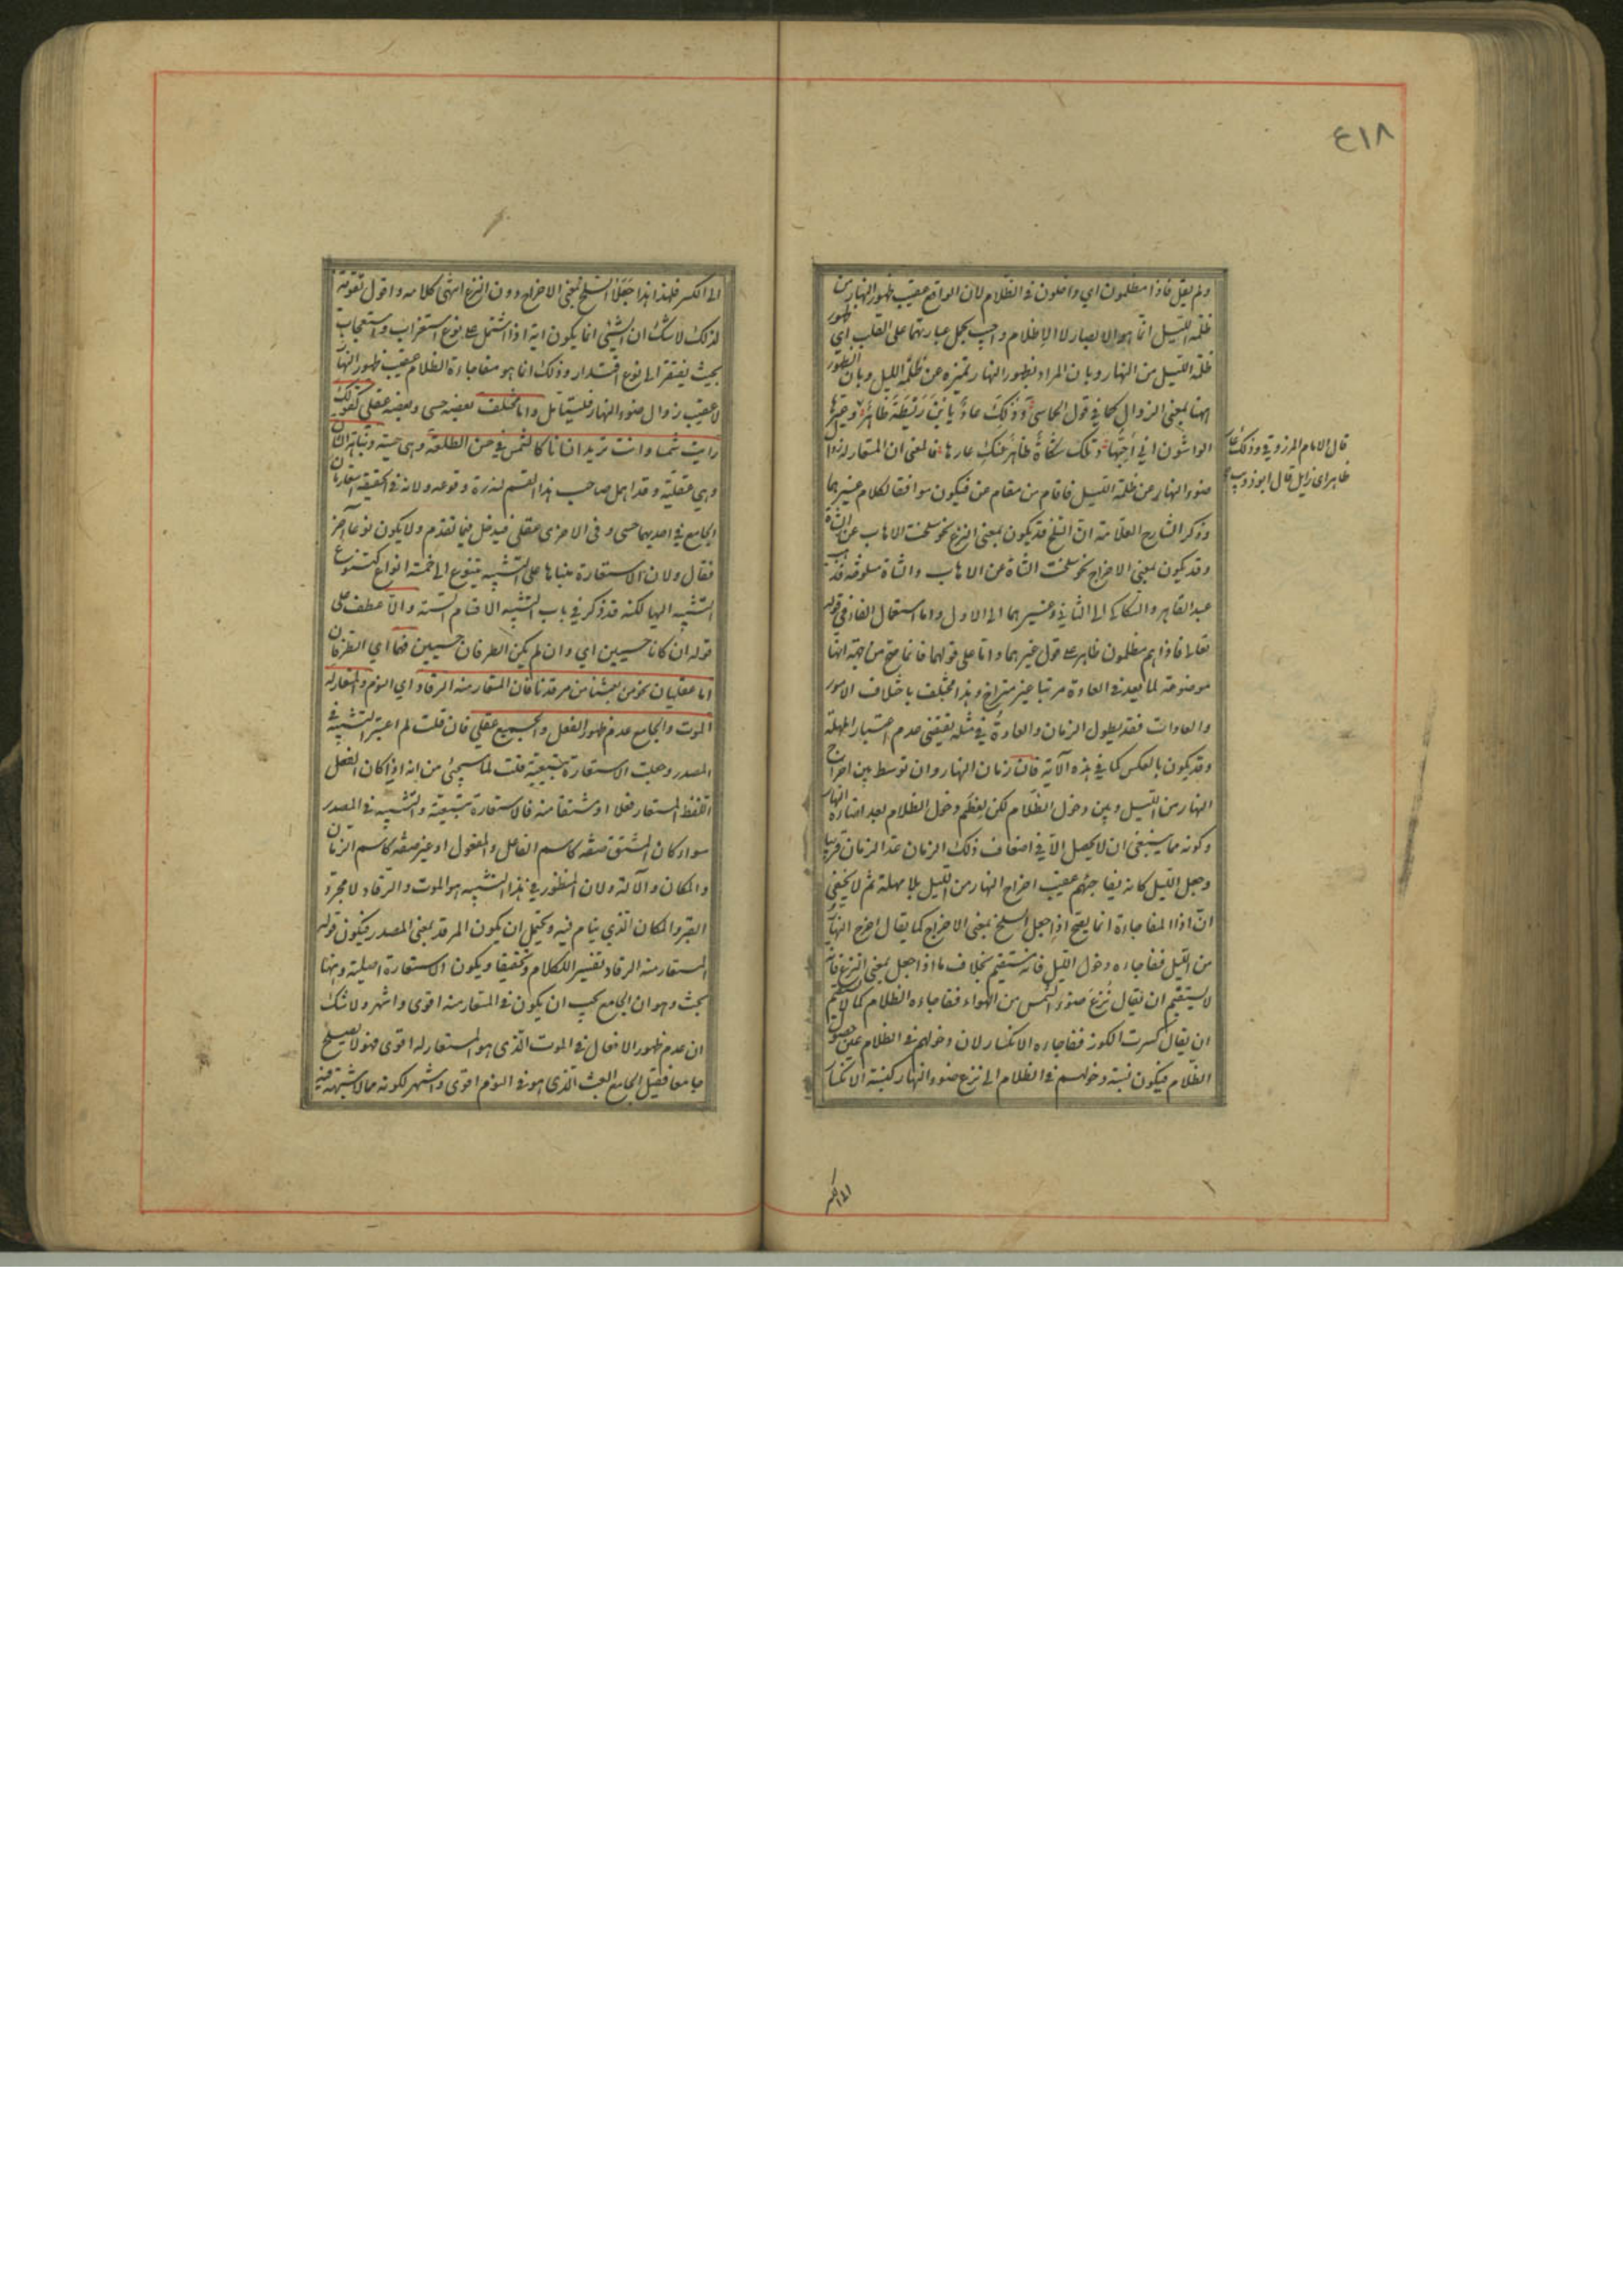 ٤١٨
ولم يقل فاذا مظلمون اى داخلون فى الظلام لان الواقع عقيب ظهور النهار من
ظلمة الليل انما هو الابصار لا الاظلام واجيب بحمل عبارتهما على القلب اى ظهور
ظلمة الليل من النهار وبان المراد بظهور النهار تميزه عن ظلمة الليل وبان الظهور
ههنا بمعنى الزوال كما فى قول الحماسى وذلك عار يا ابن ريطة ظاهر وعيرها
الواشون انى احبها وتلك شكاة ظاهر عنك عارها فالمعنى ان المستعار له زوال
ضوء النهار عن ظلمة الليل فاقام من مقام عن فيكون موافقا لكلام غيرهما
وذكر الشارح العلامة ان السلخ قد يكون بمعنى النزع نحو سلخت الاهاب عن الشاة
وقد يكون بمعنى الاخراج نحو سلخت الشاة عن الاهاب والشاة مسلوخة فذهب
عبد القاهر والسكاكى الى الثانى وغيرهما الى الاول واما استعمال الفاء فى قوله
تعالى فاذا هم مظلمون ظاهر على قول غيرهما واما على قولهما فانما صح من جهة انها
موضوعة لما يعد فى العادة مرتبا غير متراخ وهذا يختلف باختلاف الامور
والعادات فقد يطول الزمان والعادة فى مثله تقتضى عدم اعتبار المهلة
وقد يكون بالعكس كما فى هذه الآية فان زمان النهار وان توسط بين اخراج
النهار من الليل وبين دخول الظلام لكن لعظم دخول الظلام بعد اضاءة النهار
وكونه مما ينبغى ان لا يحصل الا فى اضعاف ذلك الزمان عد الزمان قريبا
وجعل الليل كانه يفاجئهم عقيب اخراج النهار من الليل بلا مهلة ثم لا يخفى
ان اذا المفاجاءة انما يصح اذا جعل السلخ بمعنى الاخراج كما يقال اخرج النهار
من الليل ففاجاءه دخول الليل فانه مستقيم بخلاف ما اذا جعل بمعنى النزع فانه
لا يستقيم ان يقال نزع ضوء الشمس من الهواء ففاجاءه الظلام كما لا يستقيم
ان يقال كسرت الكوز ففاجاءه الانكسار لان دخولهم فى الظلام عين حصول
الظلام فيكون نسبة دخولهم فى الظلام الى نزع ضوء النهار كنسبة الانكسار
قال الامام المرزوقى وذلك عار
ظاهر اى زايل قال ابو ذويب
الى الكسر
الى الكسر فلهذا جعلا السلخ بمعنى الاخراج دون النزع انتهى كلامه واقول تقوية
لذلك لا شك ان الشئ انما يكون آية اذا اشتمل على نوع استغراب واستعجاب
بحيث يفتقر الى نوع اقتدار وذلك انما هو مفاجاءة الظلام عقيب ظهور النهار
لا عقيب زوال ضوء النهار فليتأمل واما مختلف بعضه حسى وبعضه عقلى كقولك
رايت شمسا وانت تريد انسانا كالشمس فى حسن الطلعة وهى حسية ونباهة الشان
وهى عقلية وقد اهمل صاحب هذا القسم لندرة وقوعه ولانه فى الحقيقة استعارتان
الجامع فى احديهما حسى وفى الاخرى عقلى فيدخل فيما تقدم ولا يكون نوعا آخر
فقال ولان الاستعارة مبناها على التشبيه تتنوع الى خمسة انواع كتنوع
التشبيه اليها لكنه قد ذكر فى باب التشبيه الاقسام الستة والا عطف على
قوله ان كانا حسيين اى وان لم يكن الطرفان حسيين فهما اى الطرفان
اما عقليان نحو من بعثنا من مرقدنا فان المستعار منه الرقاد اى النوم والمستعار له
الموت والجامع عدم ظهور الفعل والجميع عقلى فان قلت لم اعتبر التشبيه فى
المصدر وجعلت الاستعارة تبعية قلت لما سيجئ من انه اذا كان الفعل
اللفظ المستعار فعلا او مشتقا منه فالاستعارة تبعية والتشبيه فى المصدر
سواء كان المشتق صفة كاسم الفاعل والمفعول او غير صفة كاسم الزمان
والمكان والآلة ولان المنظور فى هذا التشبيه هو الموت والرقاد لا مجرد
القبر والمكان الذى ينام فيه ويحتمل ان يكون المرقد بمعنى المصدر فيكون قوله
المستعار منه الرقاد تفسيرا للكلام وتحقيقا ويكون الاستعارة اصلية وههنا
بحث وهو ان الجامع يجب ان يكون فى المستعار منه اقوى واشهر ولا شك
ان عدم ظهور الافعال فى الموت الذى هو المستعار له اقوى فهو لا يصلح
جامعا فقيل الجامع البعث الذى هو فى النوم اقوى واشهر لكونه مما لا شبهة فيه